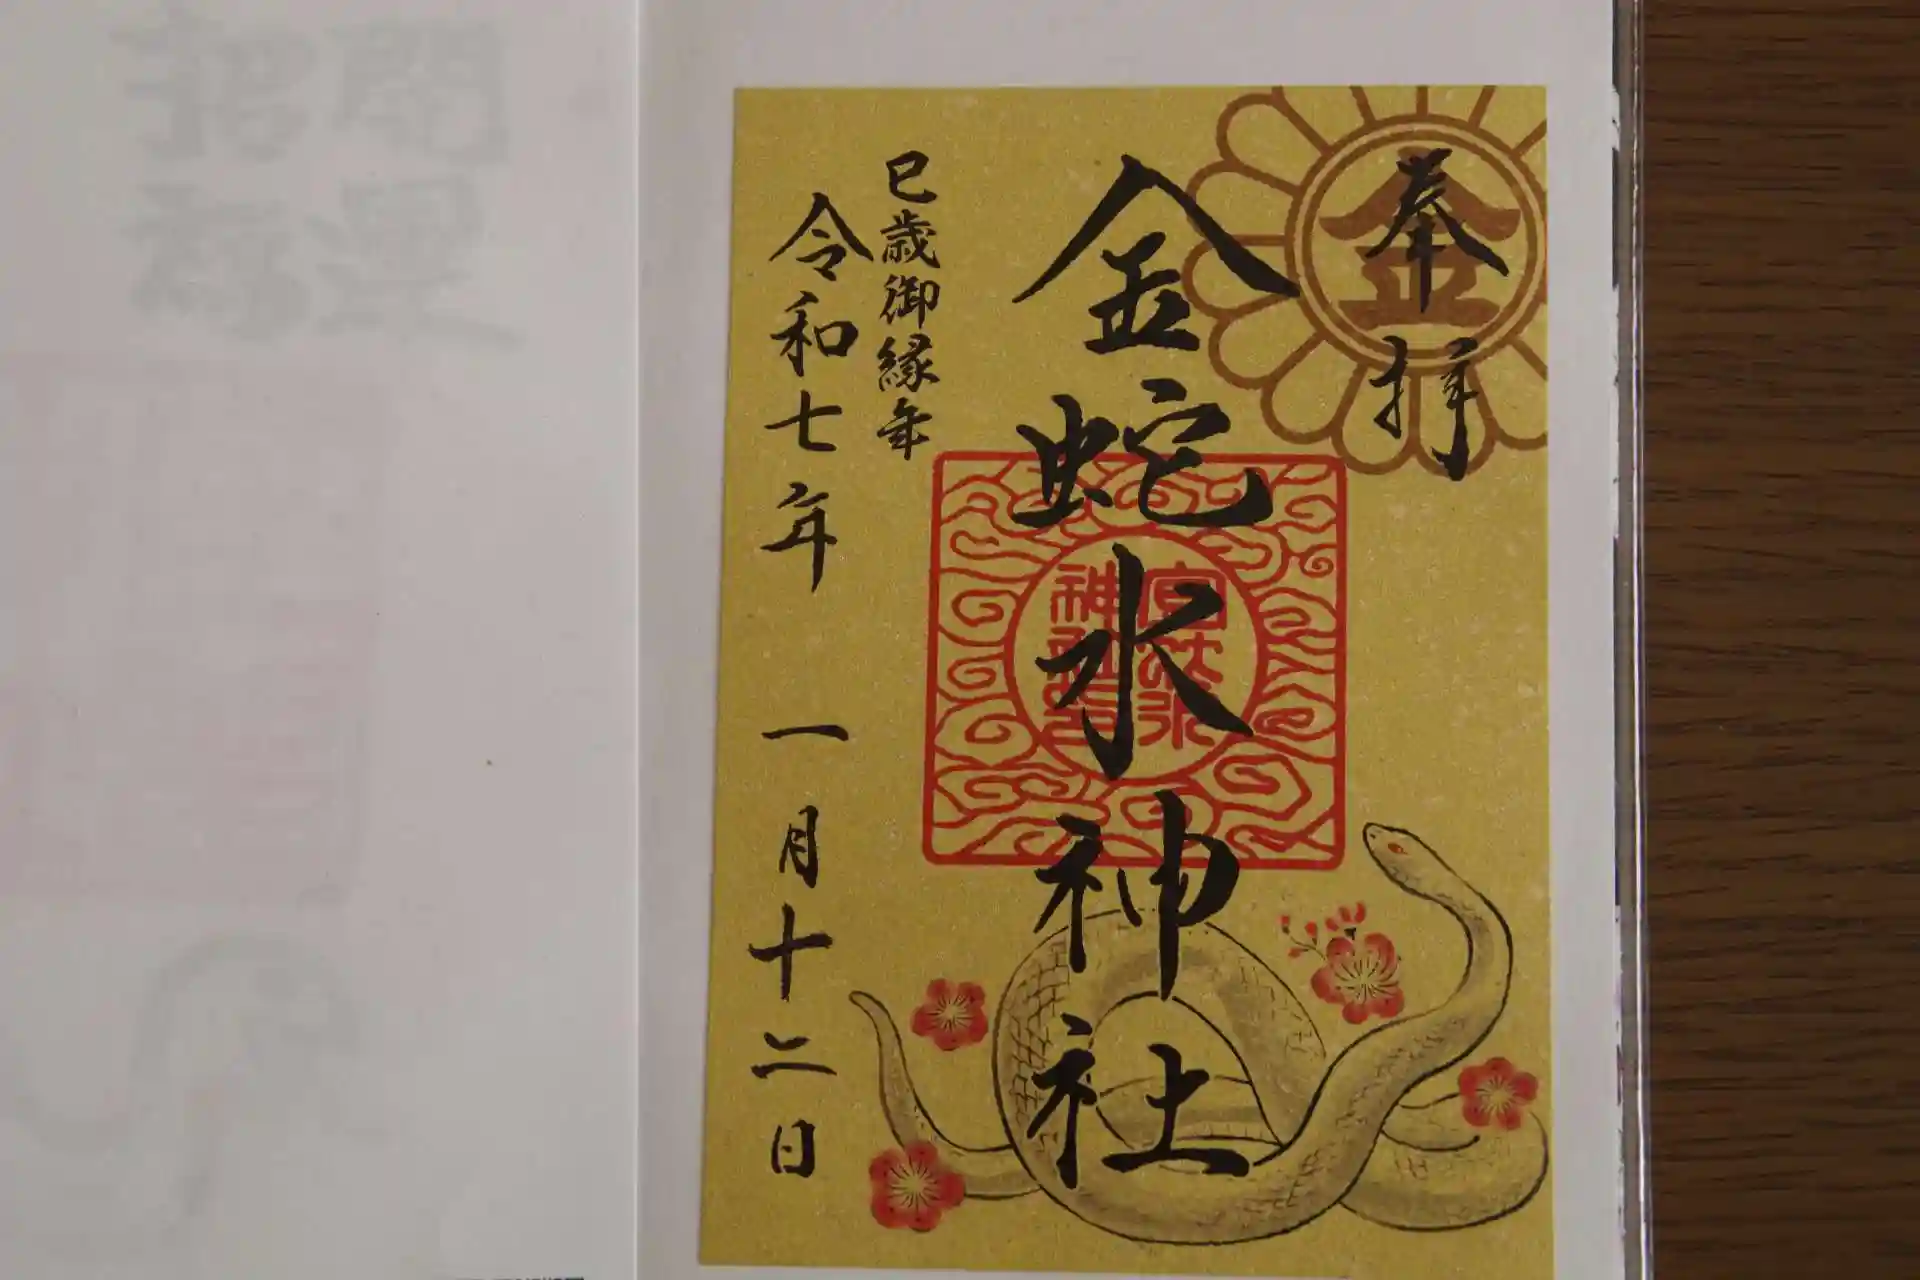 奉拝
金
金蛇水神社
巳歳御縁年
令和七年 一月十二日
開運
招福